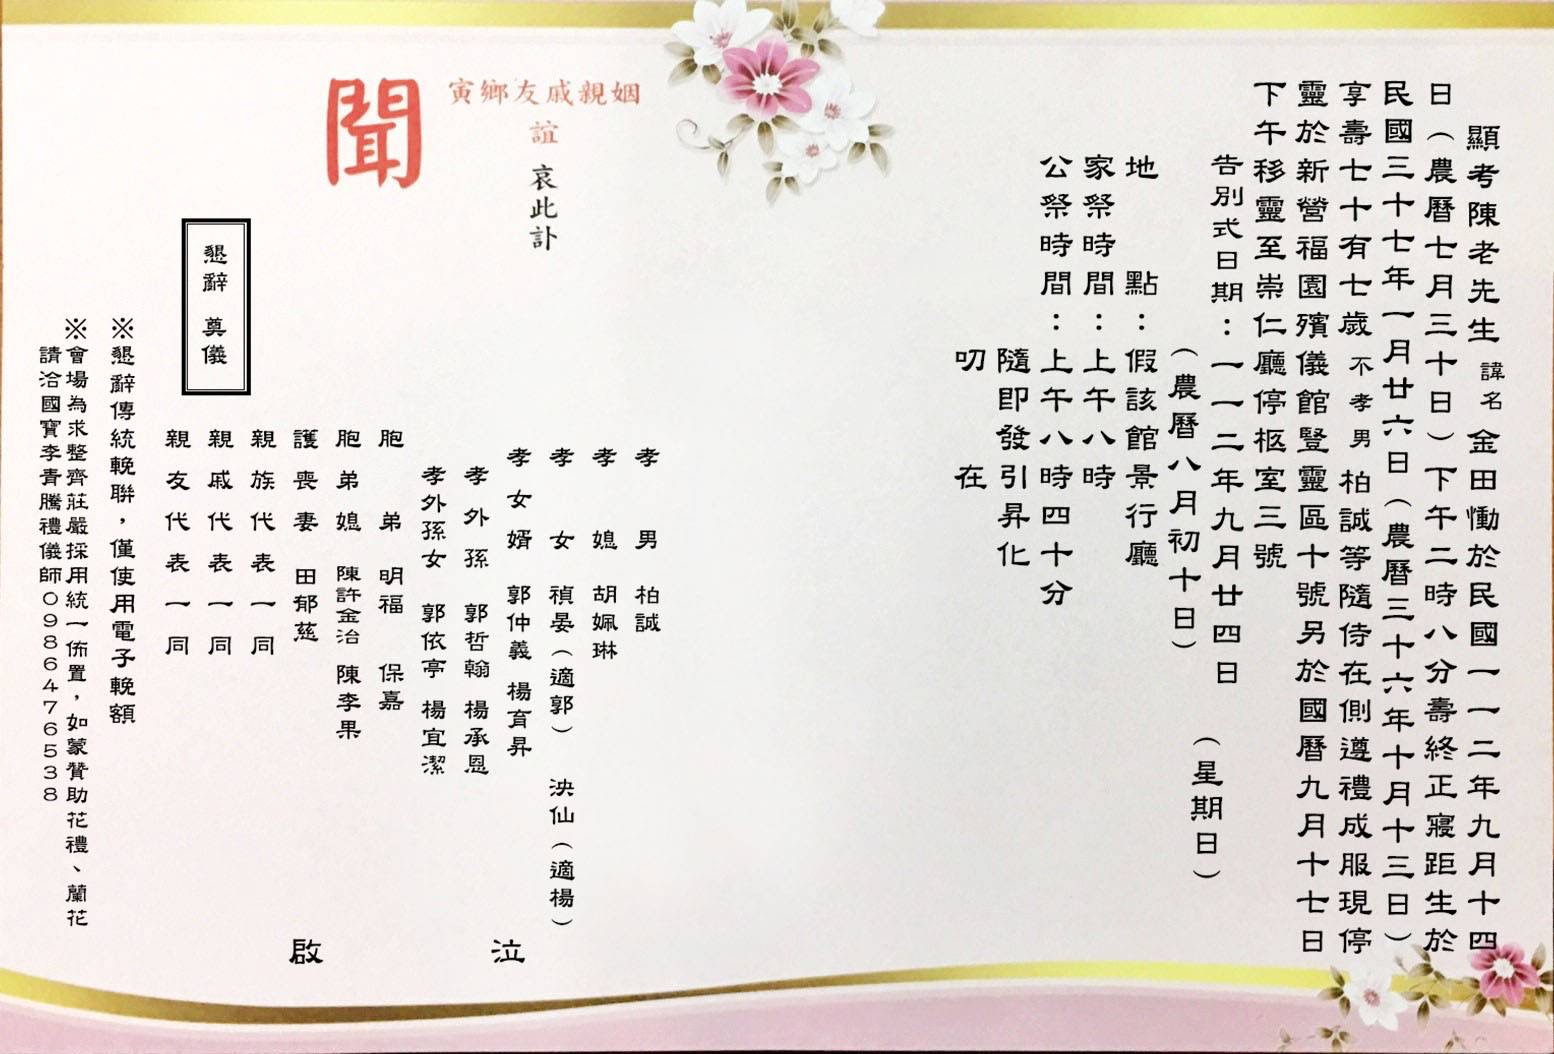 顯考陳老先生 諱名 金田慟於民國一一二年九月十四
日（農曆七月三十日）下午二時八分壽終正寢距生於
民國三十七年一月廿六日（農曆三十六年十月十三日）
享壽七十有七歲 不孝男 柏誠等隨侍在側遵禮成服現停
靈於新營福園殯儀館豎靈區十號另於國曆九月十七日
下午移靈至崇仁廳停柩室三號
告別式日期：一一二年九月廿四日（星期日）
（農曆八月初十日）
地點：假該館景行廳
家祭時間：上午八時
公祭時間：上午八時四十分
隨即發引昇化
叨在
寅鄉友戚親姻
誼
哀此訃
聞
孝男 柏誠
孝媳 胡姵琳
孝女 禎晏（適郭） 泱仙（適楊）
孝女婿 郭仲義 楊育昇
孝外孫 郭哲翰 楊承恩
孝外孫女 郭依亭 楊宜潔
胞弟 明福 保嘉
胞弟媳 陳許金治 陳李果
護喪妻 田郁慈
親族代表一同
親戚代表一同
親友代表一同
泣
啟
懇辭 奠儀
※懇辭傳統輓聯，僅使用電子輓額
※會場為求整齊莊嚴採用統一佈置，如蒙贊助花禮、蘭花
請洽國寶李青騰禮儀師0986476538